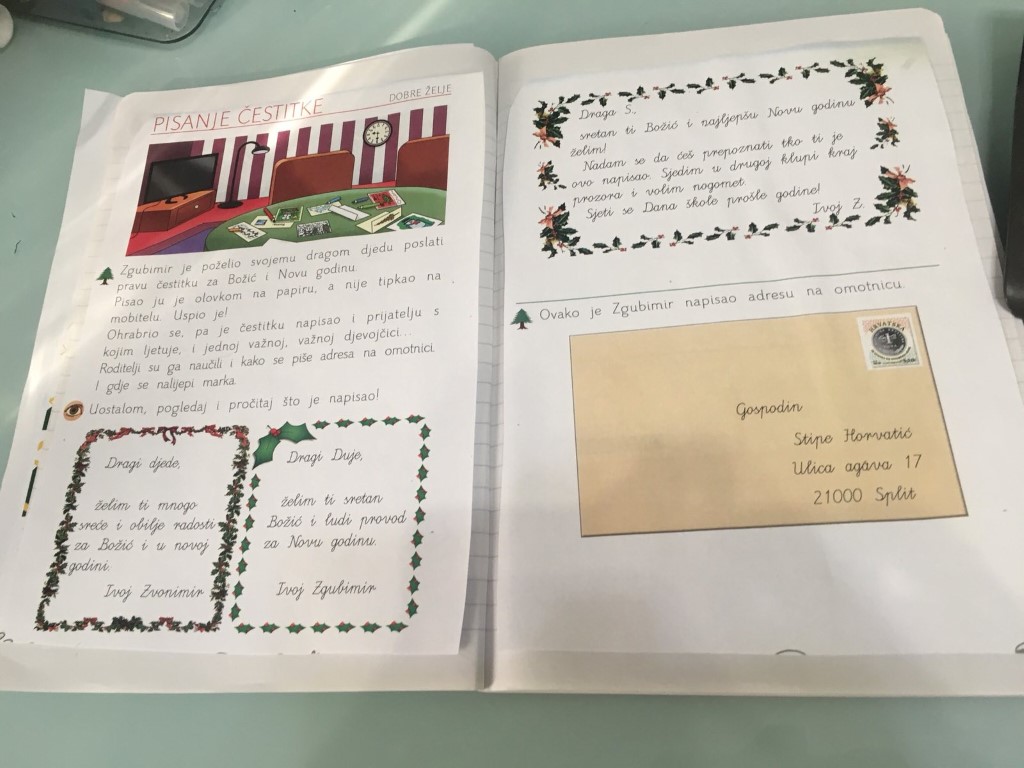 PISANJE ČESTITKE
DOBRE ŽELJE
Zgubimir je poželio svojemu dragom djedu poslati
pravu čestitku za Božić i Novu godinu.
Pisao ju je olovkom na papiru, a nije tipkao na
mobitelu. Uspio je!
Ohrabrio se, pa je čestitku napisao i prijatelju s
kojim ljetuje, i jednoj važnoj, važnoj djevojčici...
Roditelji su ga naučili i kako se piše adresa na omotnici.
I gdje se nalijepi marka.
Uostalom, pogledaj i pročitaj što je napisao!
Dragi djede,
želim ti mnogo
sreće i obilje radosti
za Božić i u novoj
godini.
Tvoj Zvonimir
Dragi Duje,
želim ti sretan
Božić i ludi provod
za Novu godinu.
Tvoj Zgubimir
Draga S.,
sretan ti Božić i najljepšu Novu godinu
želim!
Nadam se da ćeš prepoznati tko ti je
ovo napisao. Sjedim u drugoj klupi kraj
prozora i volim nogomet.
Sjeti se Dana škole prošle godine!
Tvoj Z.
Ovako je Zgubimir napisao adresu na omotnicu.
HRVATSKA
Gospodin
Stipe Horvatić
Ulica agava 17
21000 Split